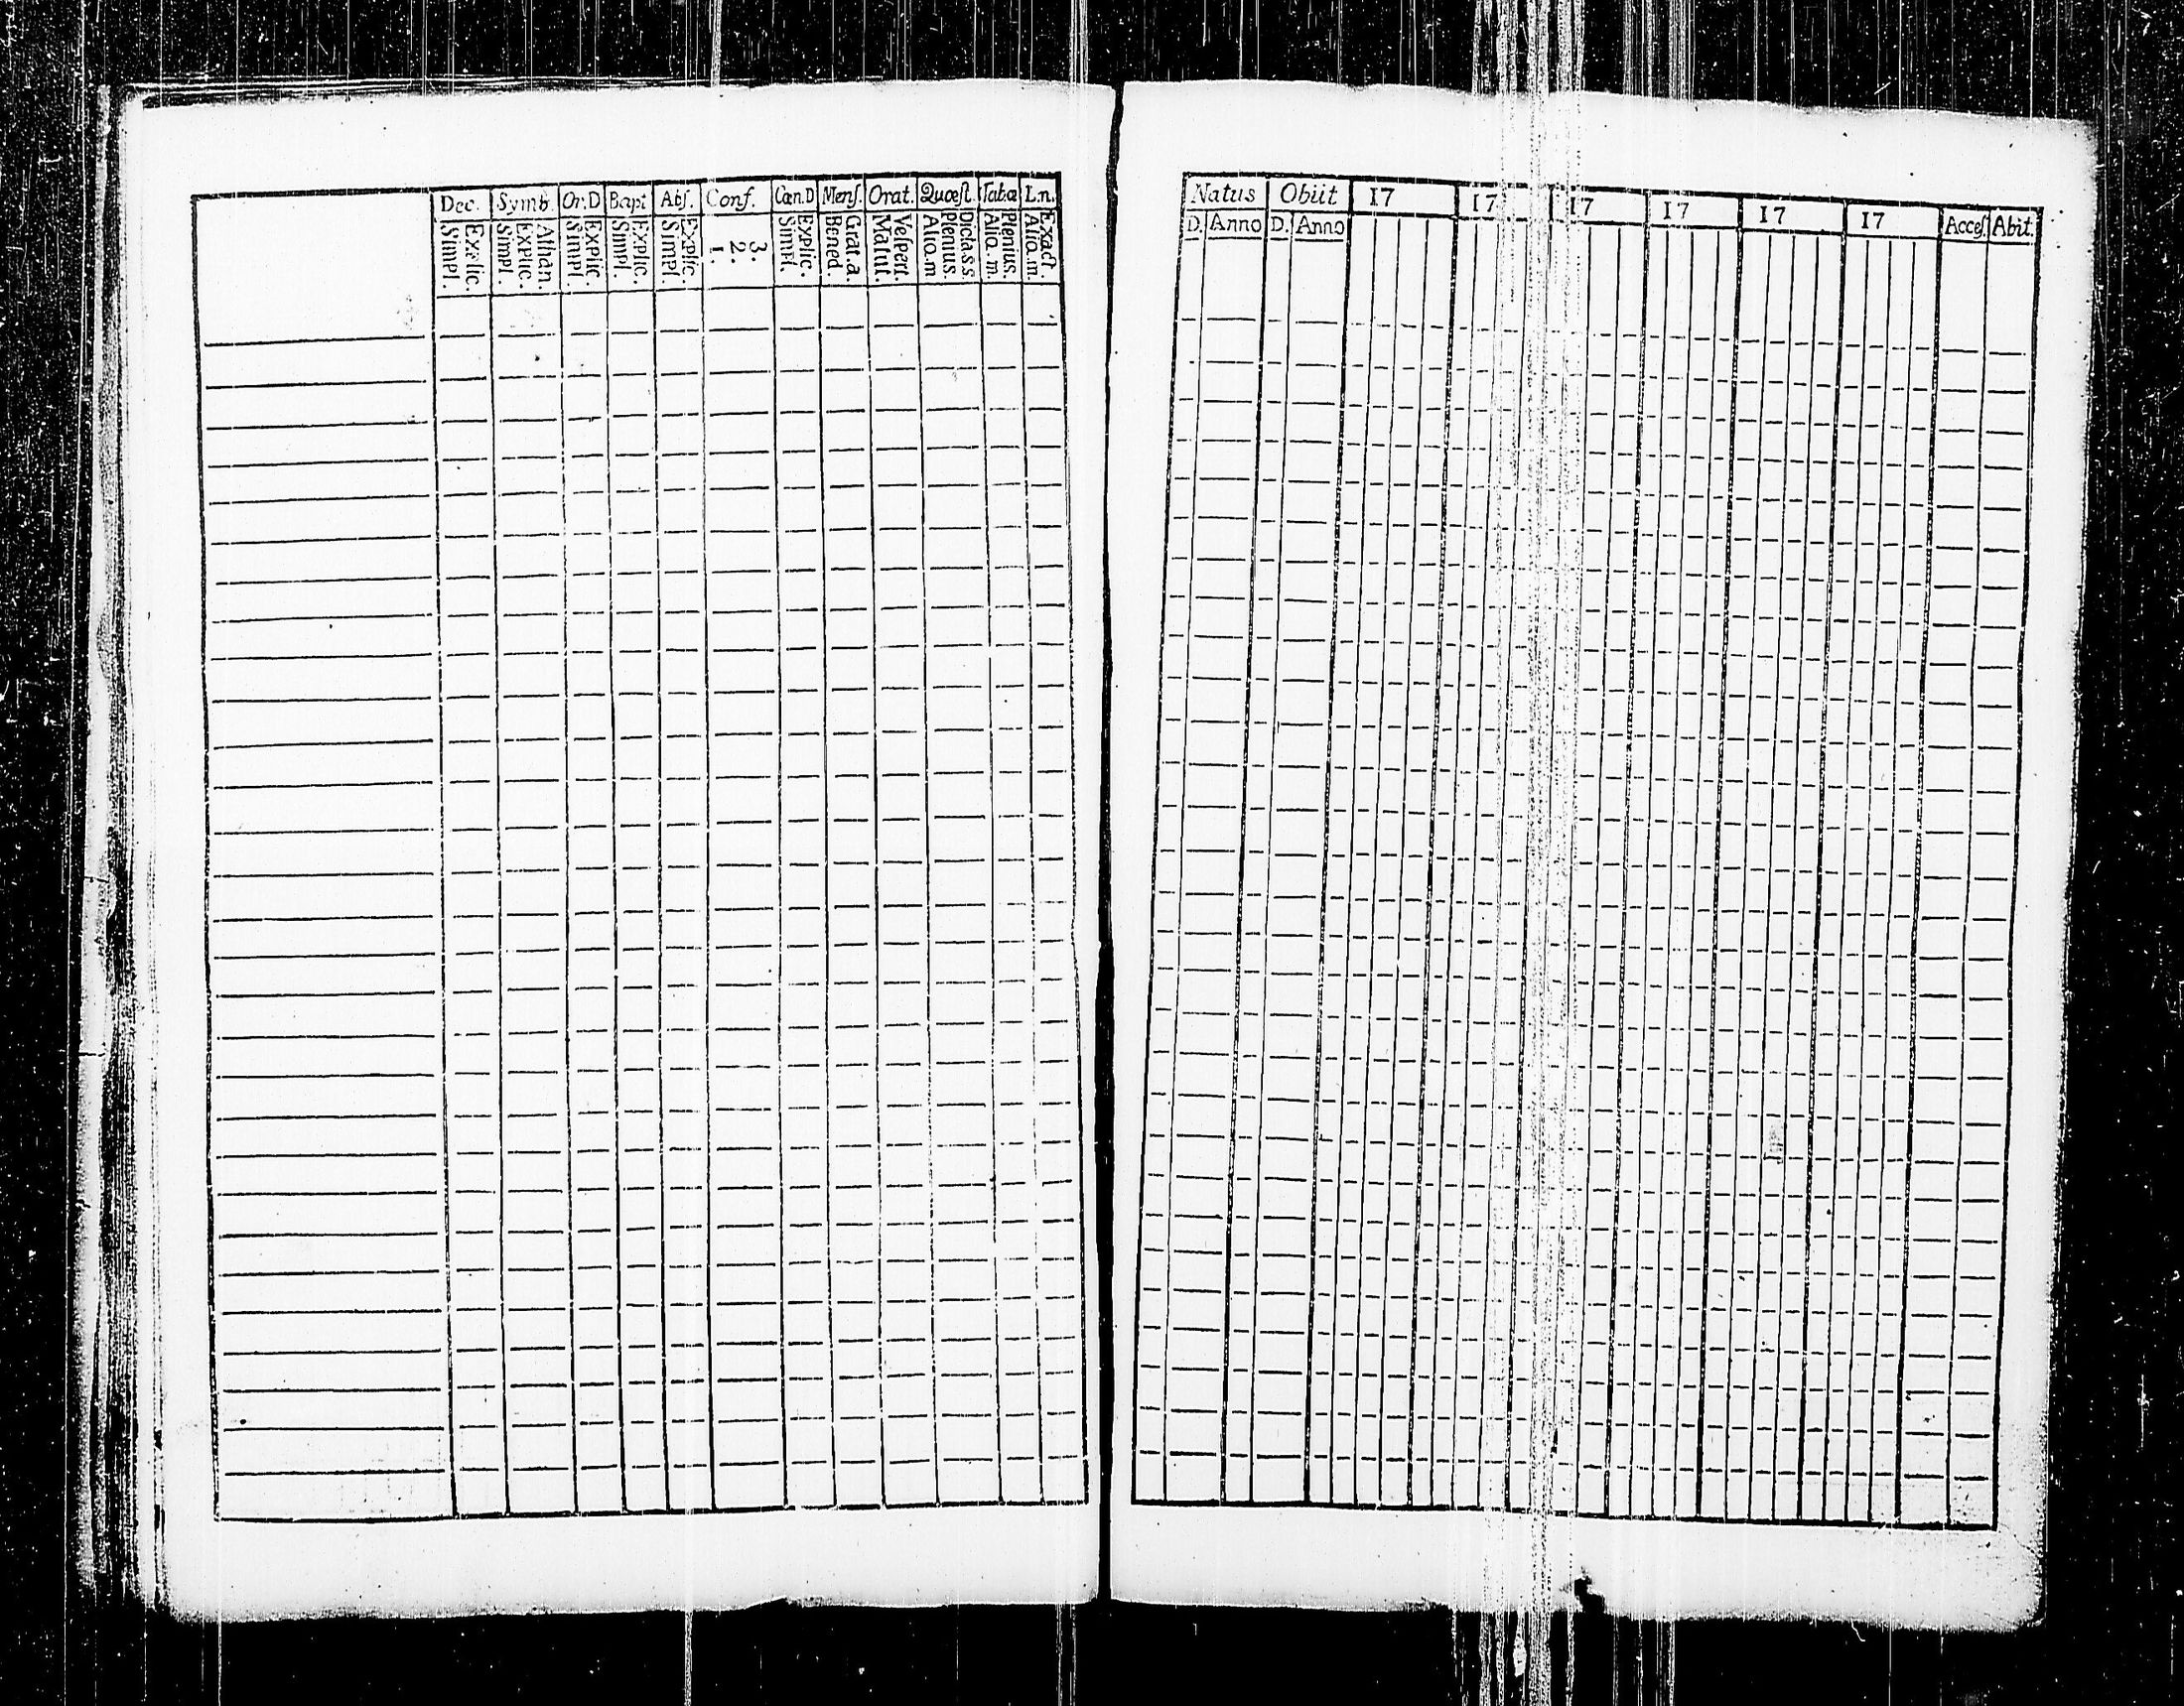 Dec. Symb. Or.D Bapt Abſ. Conf. Cœn.D Menſ. Orat. Quæſt. Tab.œ L.n.
Simpl. Explic.
Simpl. Explic. Athan.
Simpl. Explic.
Simpl. Explic.
Simpl. Explic.
1. 2. 3.
Simpl. Explic.
Bened. Grat.a.
Matut. Veſpert.
Alio.m Plenius. Dicta.s.s.
Alio.m. Plenius.
Alio.m. Exact.
Natus Obiit 17 17 17 17 17 17 Acceſ. Abit.
D. Anno D. Anno